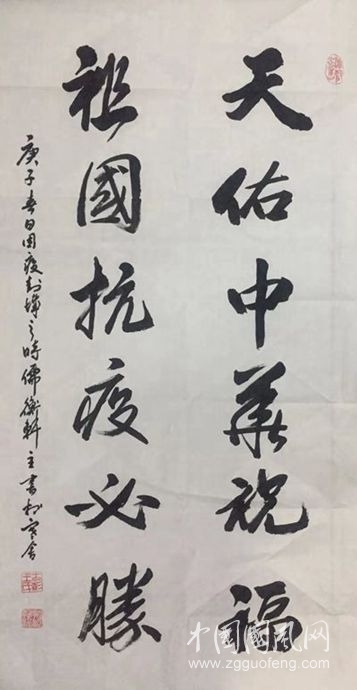 天佑中華祝福
祖國抗疫必勝
庚子春日因疫封城之時儒衡軒主書於宅舍
中国國風网
www.zgguofeng.com